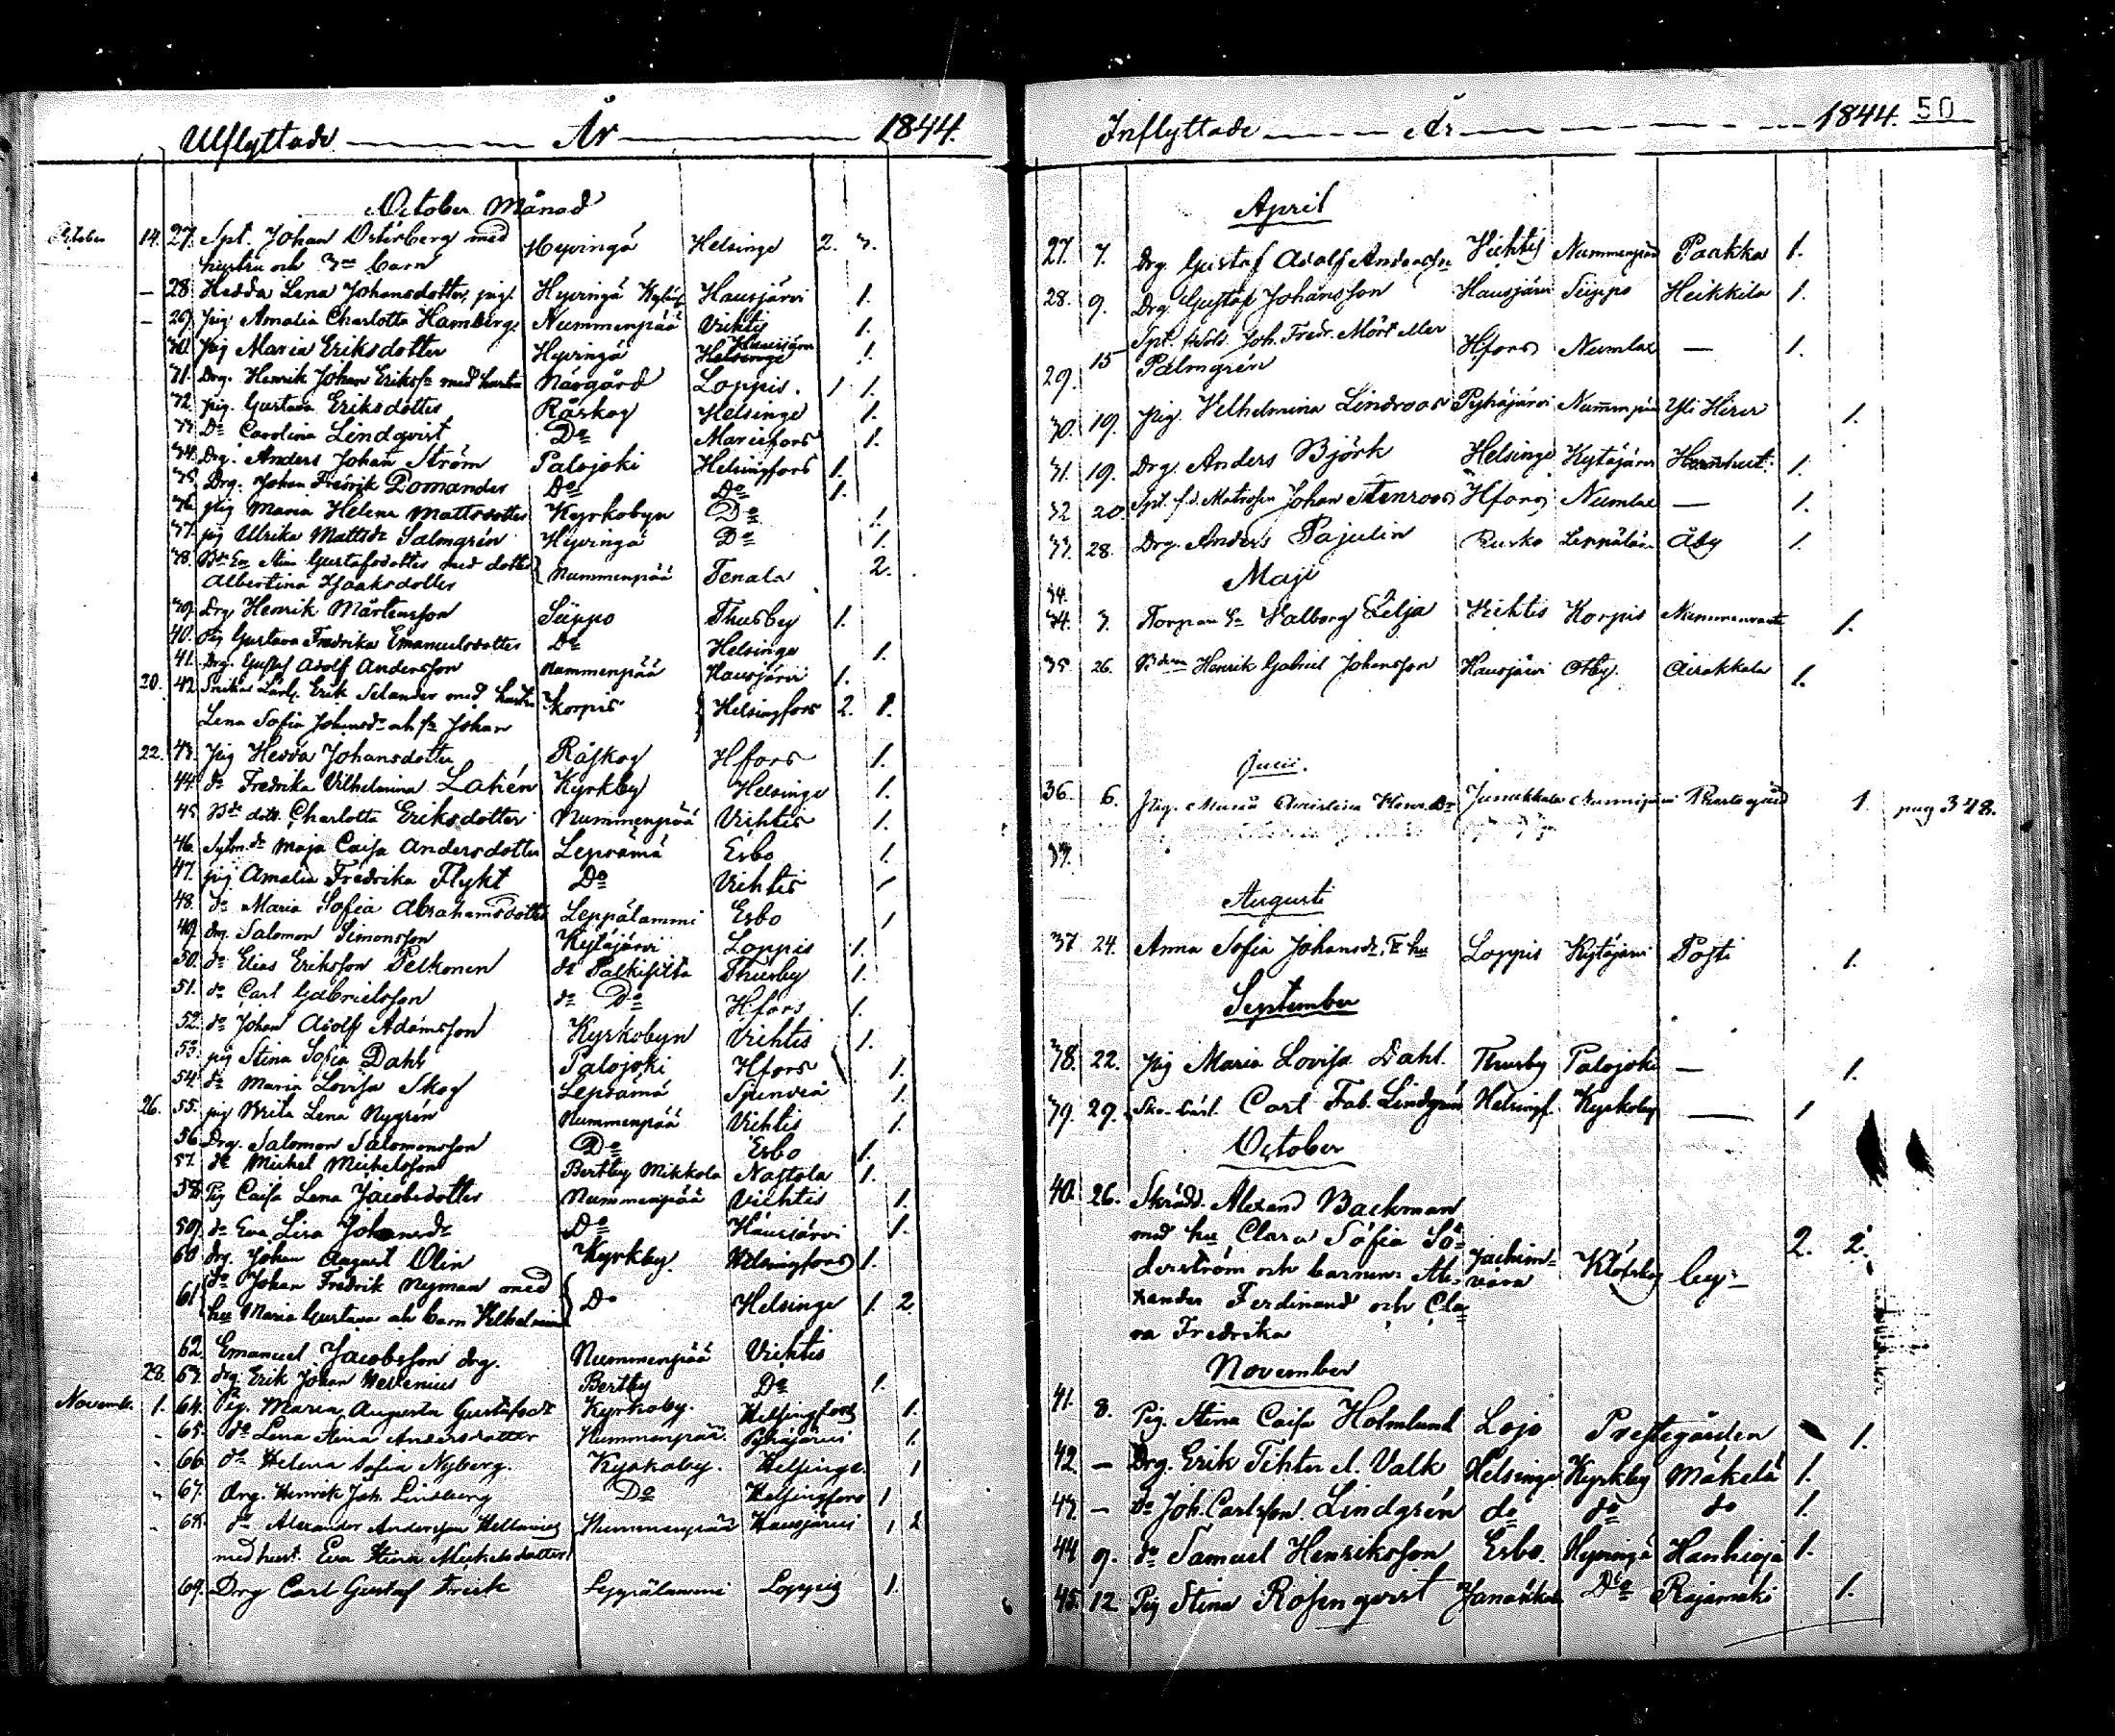 Utflyttade År 1844.
October Månad
October 14. 27. Spt. Johan Österberg med Hyvingä Helsinge 2. 3.
hustru och 3ne barn
— 28. Hedda Lena Johansdotter, pig. Hyvingä Kylä Hausjärvi 1.
— 29. pig Amalia Charlotta Hamberg Nummenpää Vichtis 1.
30. pig Maria Eriksdotter Hyvingä Helsinge Hausjärvi 1.
31. Drg. Henrik Johan Erikss. med hustru Närgård Loppis. 1 1.
32. pig. Gustava Eriksdotter Råskog Helsinge 1.
33. Do Carolina Lindqvist Do Mariefors 1.
34. Drg. Anders Johan Ström Palojoki Helsingfors 1.
35. Drg. Johan Fredrik Pomander Do Do 1.
36. pig Maria Helena Mattsdotter Kyrkobyn Do 1.
37. pig Ulrika Mattsdr Palmgrén Hyvingä Do 1.
38. Stina Gustafsdotter med dotter Nummenpää Tenala 2.
Albertina Isaaksdotter
39. Drg Henrik Mårtensson Siippo Thusby 1.
40. pig Gustava Fredrika Emanuelsdotter Do Helsinge 1.
41. Drg. Gustaf Adolf Andersson Nummenpää Hausjärvi 1.
20. 42. Snick. Lärl. Erik Selander med hustru Korpis Helsingfors 2. 1.
Lena Sofia Johansdr och sn Johan
22. 43. pig Hedda Johansdotter Råskog Hfors 1.
44. do Fredrika Vilhelmina Lahén Kyrkby Helsinge 1.
45. dott. Charlotta Eriksdotter Nummenpää Vichtis 1.
46. Maja Caisa Andersdotter Lepsämä Esbo 1.
47. pig Amalia Fredrika Flykt Do Vichtis 1
48. do Maria Sofia Abrahamsdotter Leppälammi Esbo 1
49. drg. Salomon Simonsson Kytäjärvi Loppis 1.
50. do Elias Eriksson Pelkonen do Palkisilta Thusby 1.
51. do Carl Gabrielsson do Do Hfors 1.
52. do Johan Adolf Adamsson Kyrkobyn Vichtis 1.
53. pig Stina Sofia Dahl Palojoki Hfors 1.
54. do Maria Lovisa Skog Lepsämä Sjundeå 1.
26. 55. pig Brita Lena Nygrén Nummenpää Vichtis 1.
56. Drg. Salomon Salomonsson Do Esbo 1.
57. do Michel Michelsson Bertby Mikkola Nastola 1.
58. Pig Caisa Lena Jacobsdotter Nummenpää Vichtis 1.
59. do Eva Lisa Johansdr Do Hausjärvi 1.
60. drg. Johan August Olin Kyrkby. Helsingfors 1.
61. do Johan Fredrik Nyman med Do Helsinge 1. 2
hu Maria Gustava och barn Vilhelmina
62. Emanuel Jacobsson drg. Nummenpää Vichtis
29. 63. drg Erik Johan Hellenius Bertby Do 1.
Novemb. 1. 64. Pig. Maria Augusta Gustafsdr Kyrkoby. Helsingfors 1.
65. do Lena Stina Andersdotter Nummenpää Pyhäjärvi 1.
66. do Helena Sofia Nyberg. Kyrkoby. Helsinge. 1
67. drg. Henrik Joh. Lindberg Do Helsingfors 1
68. do Alexander Andersson Hellenius Nummenpää Hausjärvi 1 2
med hust. Eva Stina Michelsdotter
69. Drg Carl Gustaf Friik Leppälammi Loppis 1.
Inflyttade År 1844. 50
April
27. 7. Drg. Gustaf Adolf Andersson Vichtis Nummenpää Paakka 1.
28. 9. Drg. Gustaf Johansson Hausjärvi Siippo Heikkila 1.
29. 15 Spt. Joh. Fredr. Mört eller Hfors Numlax — 1.
Palmgrén
30. 19. pig. Vilhelmina Lindroos Pyhäjärvi Nummenpää Yli Hirvi 1.
31. 19. Drg. Anders Björk Helsinge Kytäjärvi Herrnhut. 1.
32 20. Spt. f.d. Matrosen Johan Stenroos Hfors Numlax — 1.
33. 28. Drg. Anders Pajulin Rusko Leppälam Åby 1.
Maji
34.
34. 3. Valborg Lilja Vichtis Korpis Nummenranta 1.
35. 26. Henrik Gabriel Johansson Hausjärvi Otby. Airakkala 1.
Junii.
36. 6. Pig. Maria Christina Henr.dr Janakkala Nummenpää 1. pag 348.
37.
Augusti
37 24. Anna Sofia Johansdr. hu Loppis Kytäjärvi Posti 1.
September
38. 22. Pig Maria Lovisa Dahl. Thusby Palojoki — 1.
39. 29. Sko. Lärl. Carl Fab. Lindgrén Helsingf. Kyrkoby — 1
October
40. 26. Skrädd. Alexand Backman
med hu Clara Sofia Sö- 2. 2.
derström och barnen: Ale- Jachimvara Klöfskog by
xander Ferdinand och Cla-
ra Fredrika
November
41. 8. Pig. Stina Caisa Holmlund Lojo Prestegården 1.
42. — Drg. Erik Tihter el. Valk Helsinge Kyrkby Mäkelä 1.
43. — do Joh. Carlsson Lindgrén do do do 1.
44. 9. do Samuel Henriksson Esbo. Hyvingä Hanhioja 1.
45. 12 Pig Stina Rosenqvist Janakkala Do Rajamäki 1.